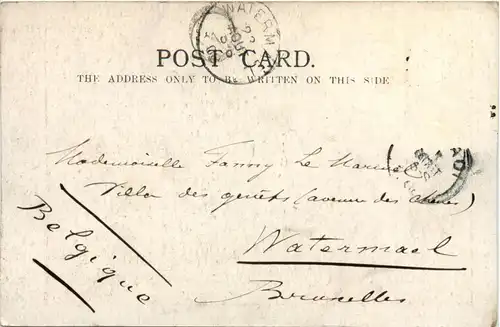 WATERM
POST CARD.
THE ADDRESS ONLY TO BE WRITTEN ON THIS SIDE
Mademoiselle Fanny Le
Villa des genêts (avenue des
Watermael
Bruxelles
Belgique